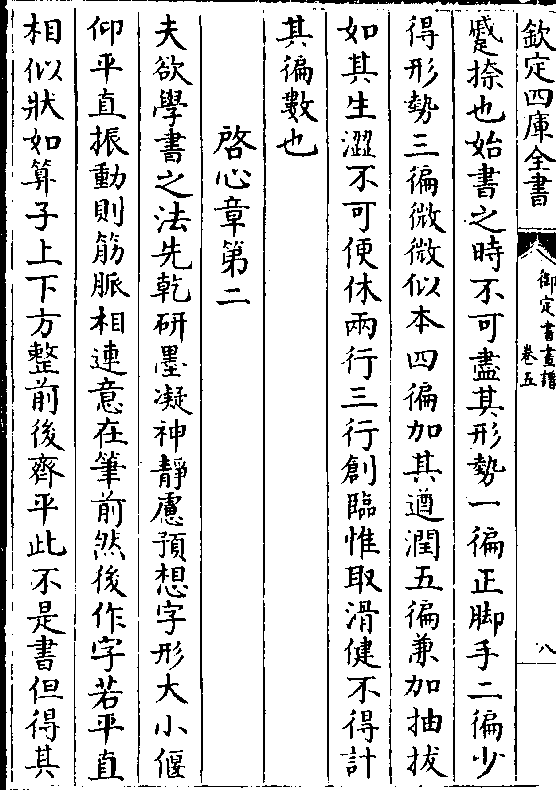 欽定四庫全書
御定書畫譜
卷五
八
蹙捺也始書之時不可盡其形勢一徧正脚手二徧少
得形勢三徧微微似本四徧加其遒潤五徧兼加抽拔
如其生澀不可便休兩行三行創臨惟取滑健不得計
其徧數也
啓心章第二
夫欲學書之法先乾研墨凝神靜慮預想字形大小偃
仰平直振動則筋脈相連意在筆前然後作字若平直
相似狀如算子上下方整前後齊平此不是書但得其